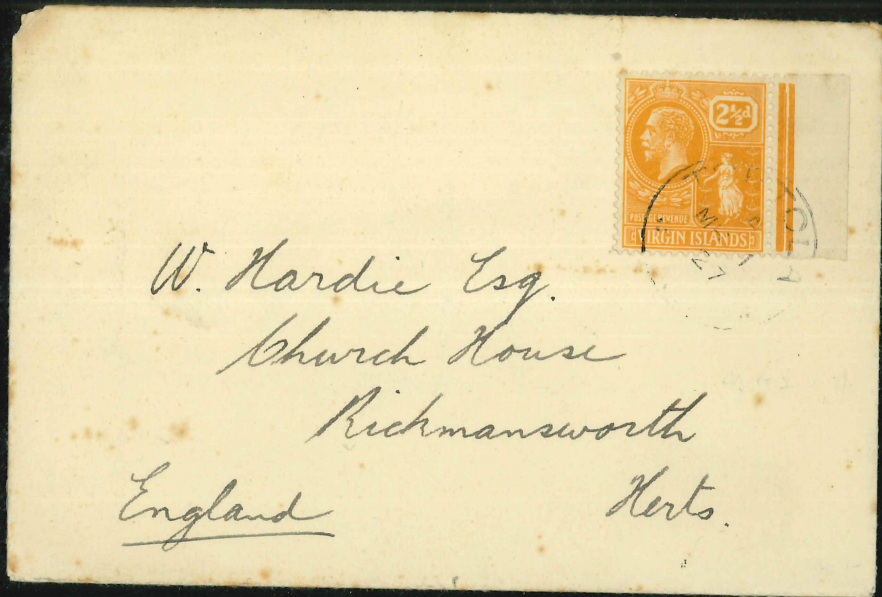 2½d
POSTAGE & REVENUE
VIRGIN ISLANDS
27
W. Hardie Esq.
Church House
Rickmansworth
England Herts.